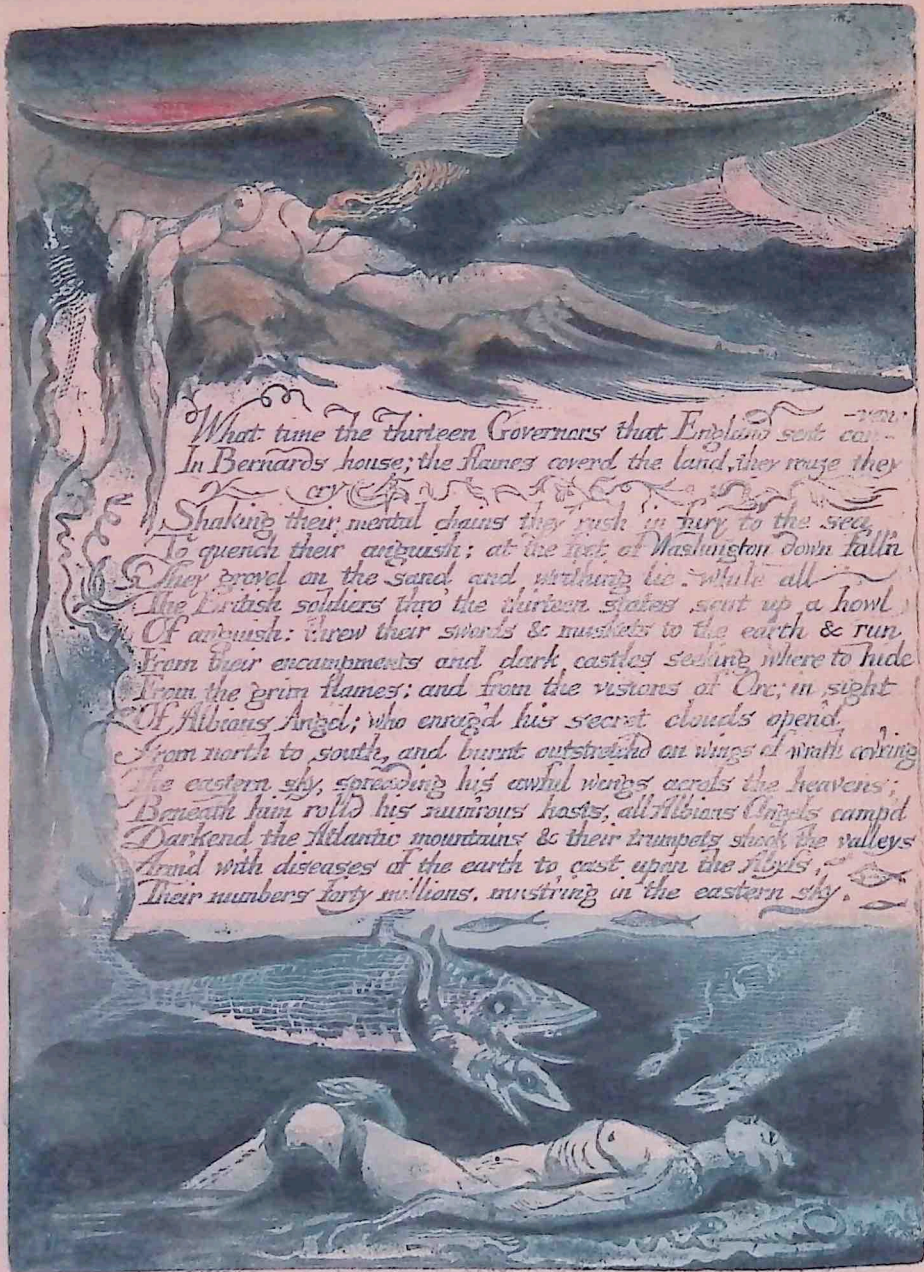 What time the thirteen Governors that England sent con-
-vene
In Bernards house; the flames coverd the land, they rouze they
cry
Shaking their mental chains they rush in fury to the sea
To quench their anguish; at the feet of Washington down fall'n
They grovel on the sand and writhing lie. while all
The British soldiers thro' the thirteen states sent up a howl
Of anguish: threw their swords & muskets to the earth & run
From their encampments and dark castles seeking where to hide
From the grim flames; and from the visions of Orc; in sight
Of Albions Angel; who enrag'd his secret clouds open'd
From north to south, and burnt outstretchd on wings of wrath cov'ring
The eastern sky, spreading his awful wings across the heavens;
Beneath him rolld his num'rous hosts, all Albions Angels camp'd
Darkend the Atlantic mountains & their trumpets shook the valleys
Arm'd with diseases of the earth to cast upon the Abyss,
Their numbers forty millions, mustring in the eastern sky.